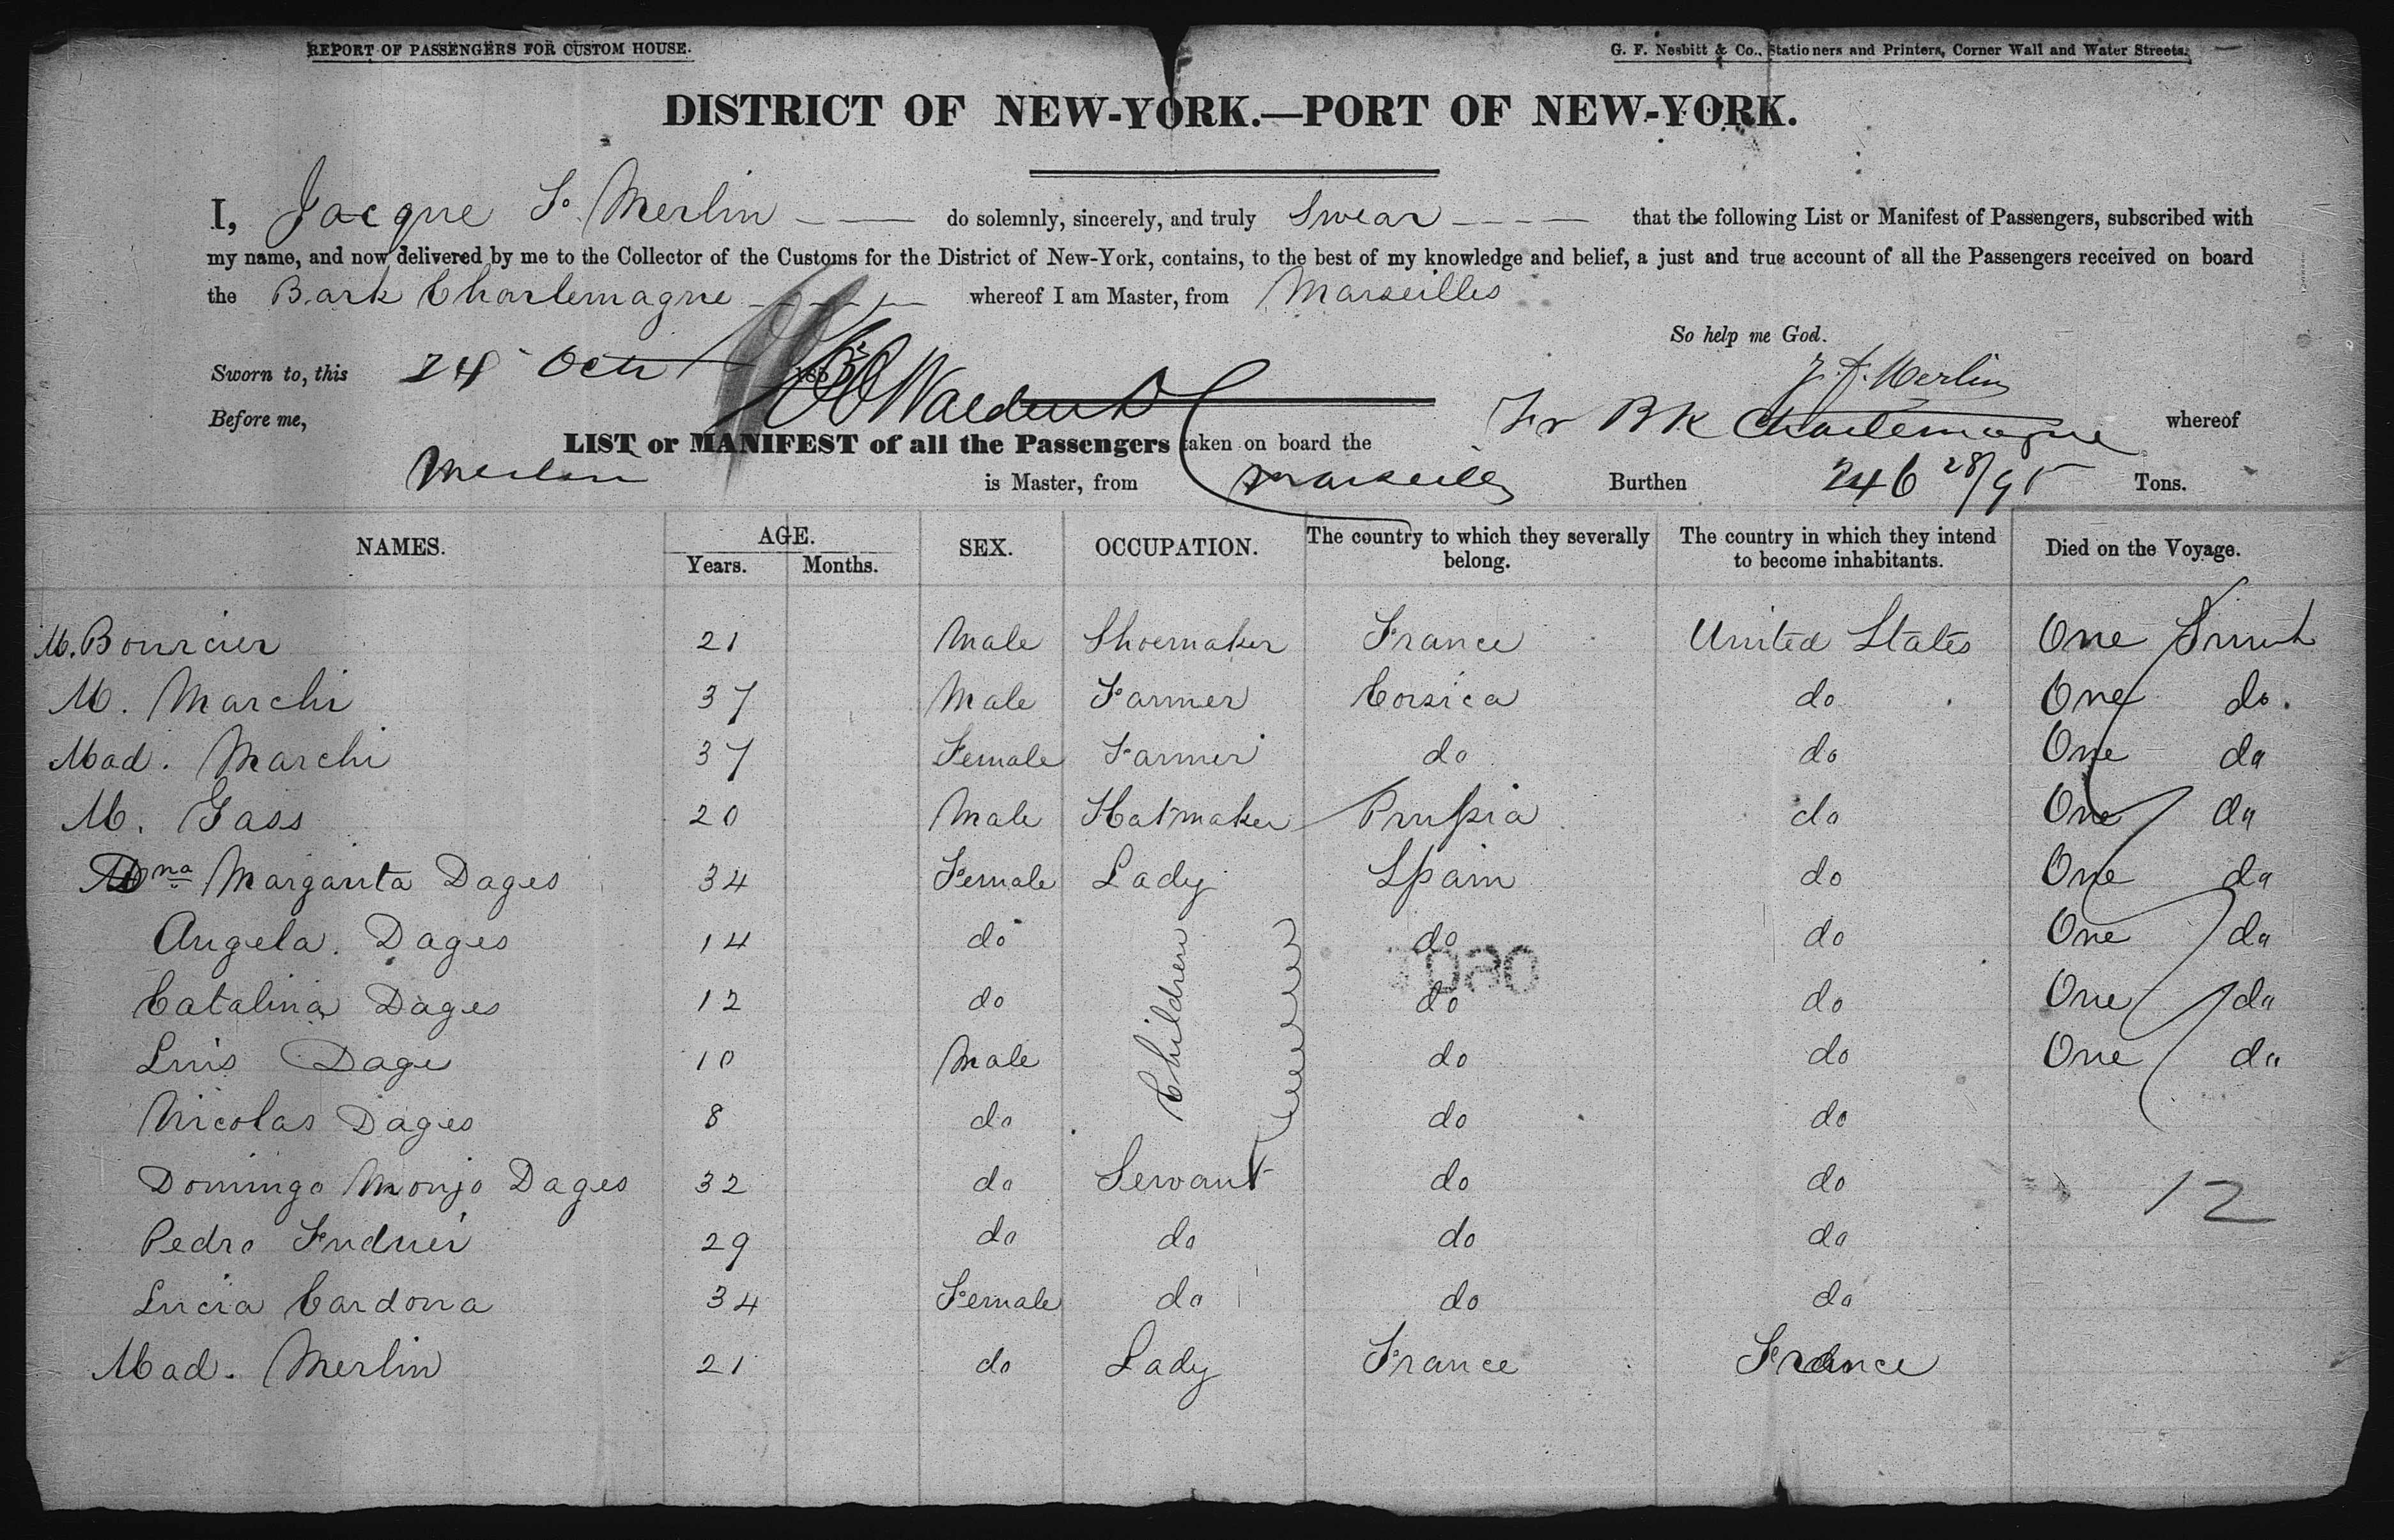 REPORT OF PASSENGERS FOR CUSTOM HOUSE. G. F. Nesbitt & Co., Stationers and Printers, Corner Wall and Water Streets.
DISTRICT OF NEW-YORK.—PORT OF NEW-YORK.
I, Jacque F. Merlin do solemnly, sincerely, and truly Swear that the following List or Manifest of Passengers, subscribed with
my name, and now delivered by me to the Collector of the Customs for the District of New-York, contains, to the best of my knowledge and belief, a just and true account of all the Passengers received on board
the Bark Charlemagne whereof I am Master, from Marseilles
So help me God.
Sworn to, this 24 Oct 185 J. F. Merlin
Before me,
LIST or MANIFEST of all the Passengers taken on board the Fr Bk Charlemagne whereof
Merlin is Master, from Marseilles Burthen 246 28/95 Tons.
NAMES. AGE. Years. Months. SEX. OCCUPATION. The country to which they severally belong. The country in which they intend to become inhabitants. Died on the Voyage.
M. Bourcier 21 Male Shoemaker France United States One Trunk
M. Marchi 37 Male Farmer Corsica do One do.
Mad. Marchi 37 Female Farmer do do One do
M. Gass 20 Male Hatmaker Prussia do One do
Dna Margarita Dages 34 Female Lady Spain do One do
Angela. Dages 14 do Children do do One do
Catalina Dages 12 do do do One do
Luis Dage 10 Male do do One do
Nicolas Dages 8 do do do
Domingo Monjo Dages 32 do Servant do do 12
Pedro 29 do do do do
Lucia Cardona 34 Female do do do
Mad. Merlin 21 do Lady France France
1080